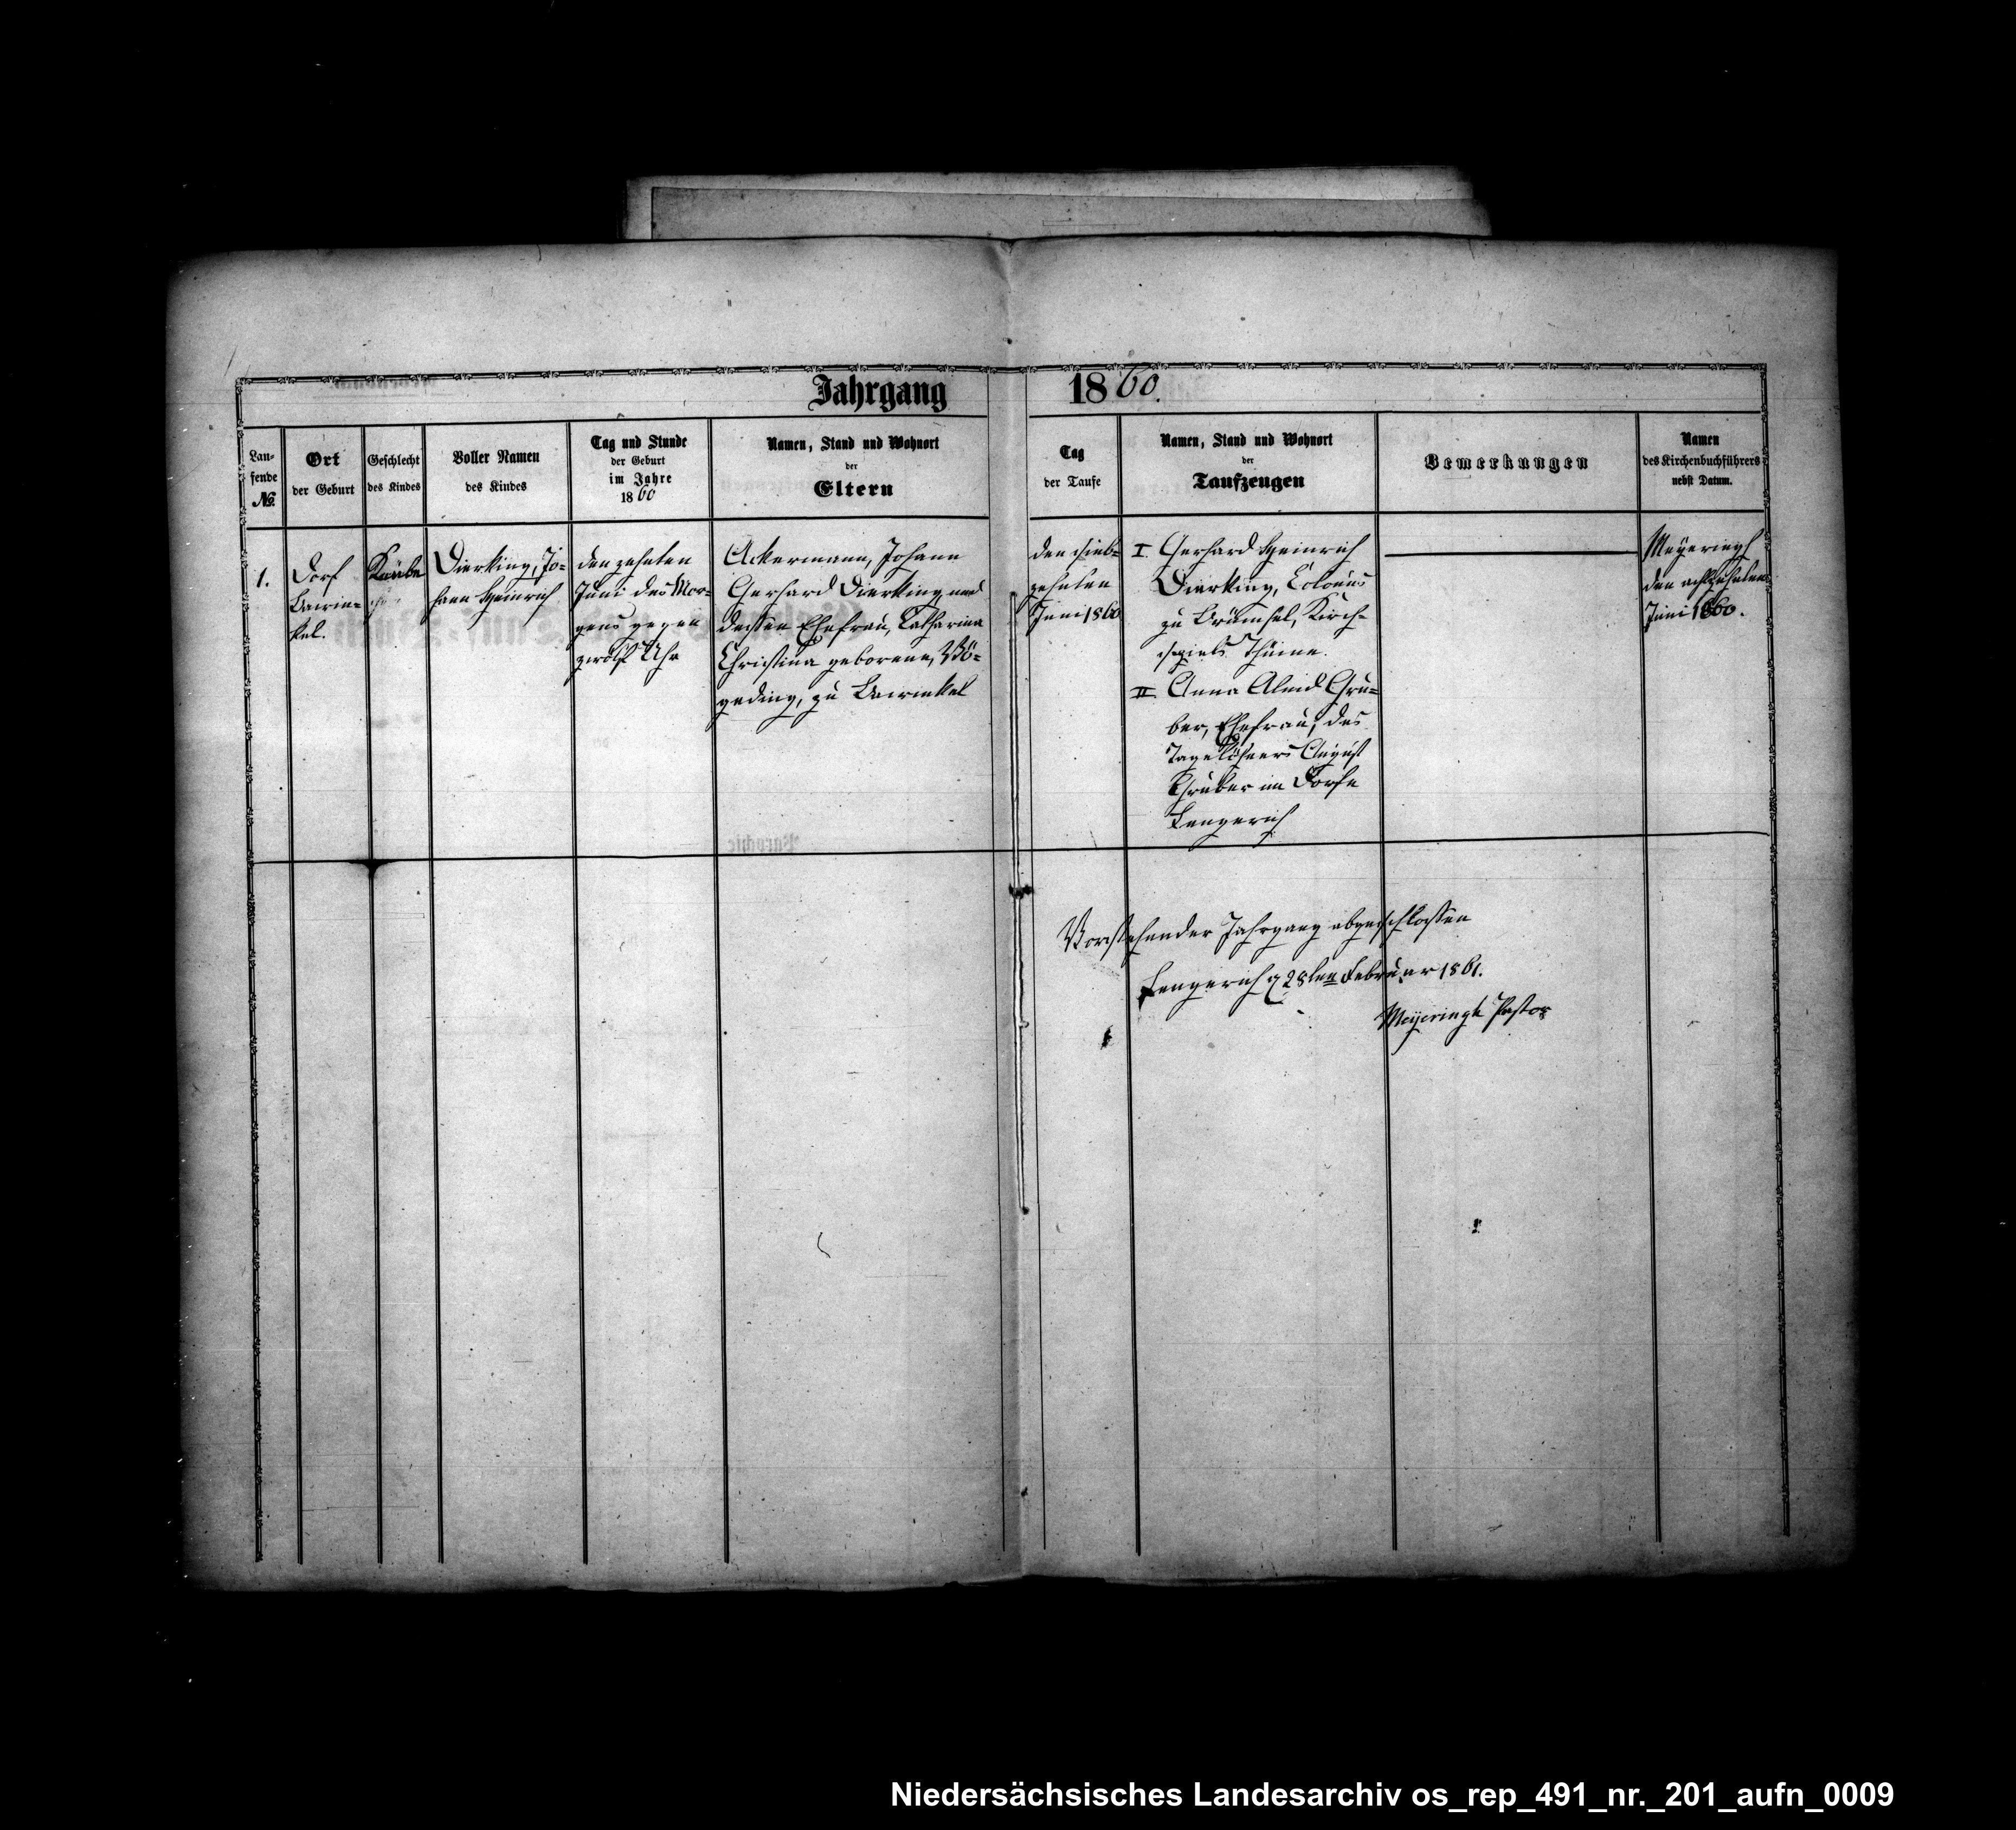 Jahrgang 1860.
Lau-
fende
№
Ort
der Geburt
Geschlecht
des Kindes
Voller Namen
des Kindes
Tag und Stunde
der Geburt
im Jahre
1860
Namen, Stand und Wohnort
der
Eltern
Tag
der Taufe
Namen, Stand und Wohnort
der
Taufzeugen
Bemerkungen
Namen
des Kirchenbuchführers
nebst Datum.
1.
Dorf
Bawin-
kel.
Knabe
Dierking, Jo-
hann Heinrich
den zehnten
Juni des Mor-
gens gegen
zwölf Uhr
Ackermann, Johann
Gerhard Dierking und
dessen Ehefrau, Catharina
Christina geborene, Bö-
geding, zu Bawinkel
den sieb-
zehnten
Juni 1860
I. Gerhard Heinrich
Dierking, Colonus
zu Brümsel, Kirch-
spiels Thuine.
II. Anna Aleid Gru-
ber, Ehefrau, des
Tagelöhners August
Gruber im Dorfe
Lengerich
Meyeringh
den achtzehnten
Juni 1860.
Vorstehender Jahrgang abgeschlossen
Lengerich d 28ten Februar 1861.
Meyeringh Pastor
Parochie
Niedersächsisches Landesarchiv os_rep_491_nr._201_aufn_0009